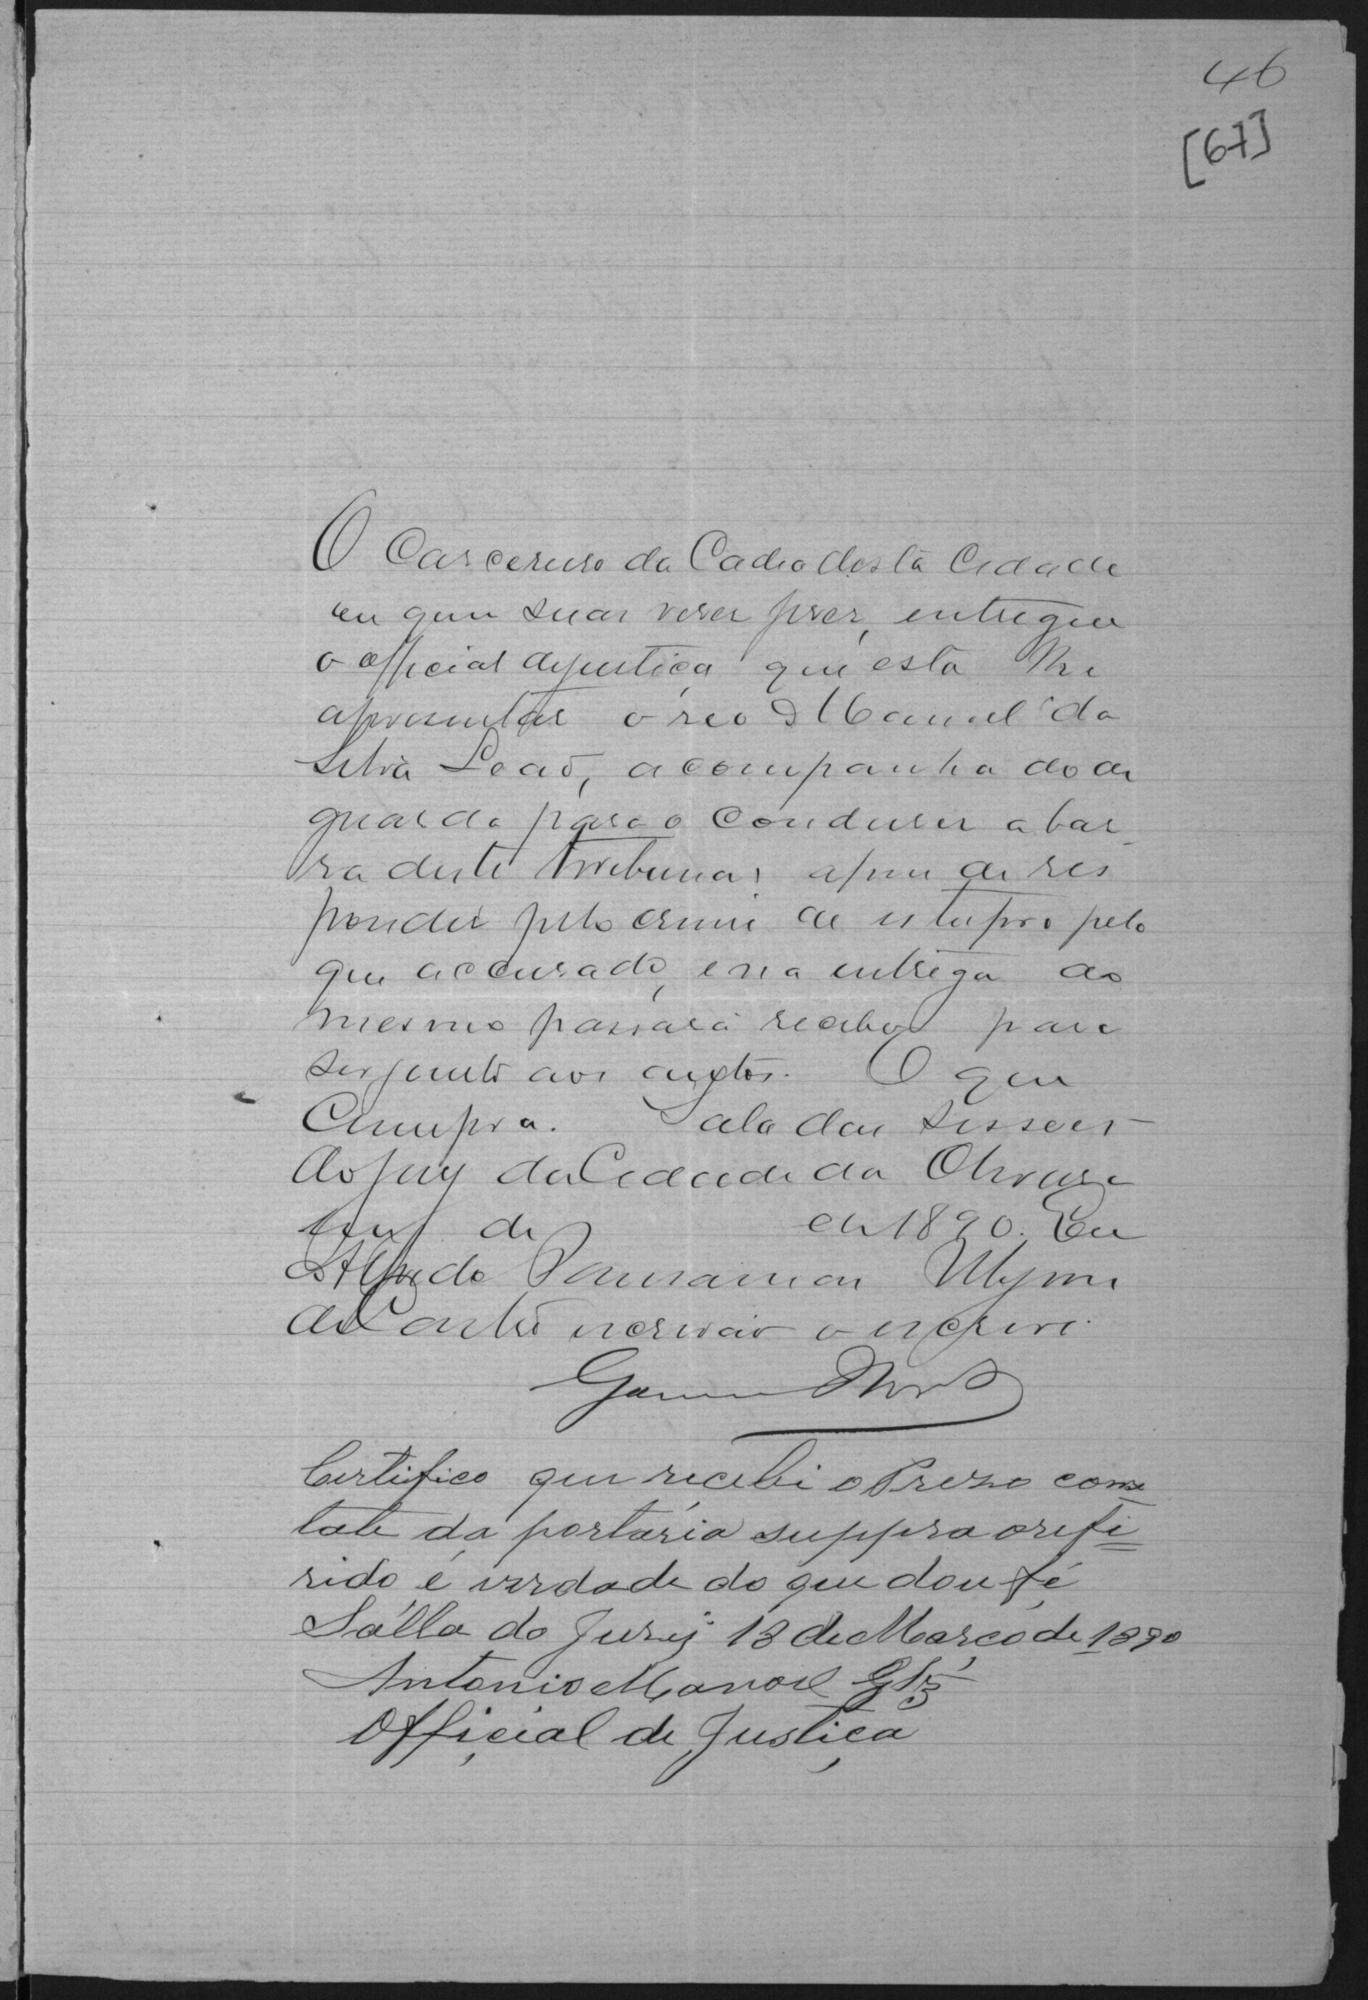 46
[67]
O Carcereiro da Cadea desta Cidade
em quem suas vezes fizer, entregue
o official dejustiça que esta lhe
apresentar o reo Manuel da
Silva Leaõ, acompanhado de
guarda para o conduzir a bar
ra deste tribunal afim de res
ponder pelo crime de estupro pelo
que accusado, e na entrega do
mesmo passará recibo para
ser junto aos autos. O que
Cumpra. Sala das Sessoes
do jury da Cidade da
de de 1890. Eu
Alfredo
de Castro escrivaõ o escrevi.
Certifico que recebi o Prezo cons
tate da portaria suppra orefi=
rido é verdade do que dou fé
Sálla do Jury 13 de Março de 1890
Antonio Manoel Glz
Official de Justiça